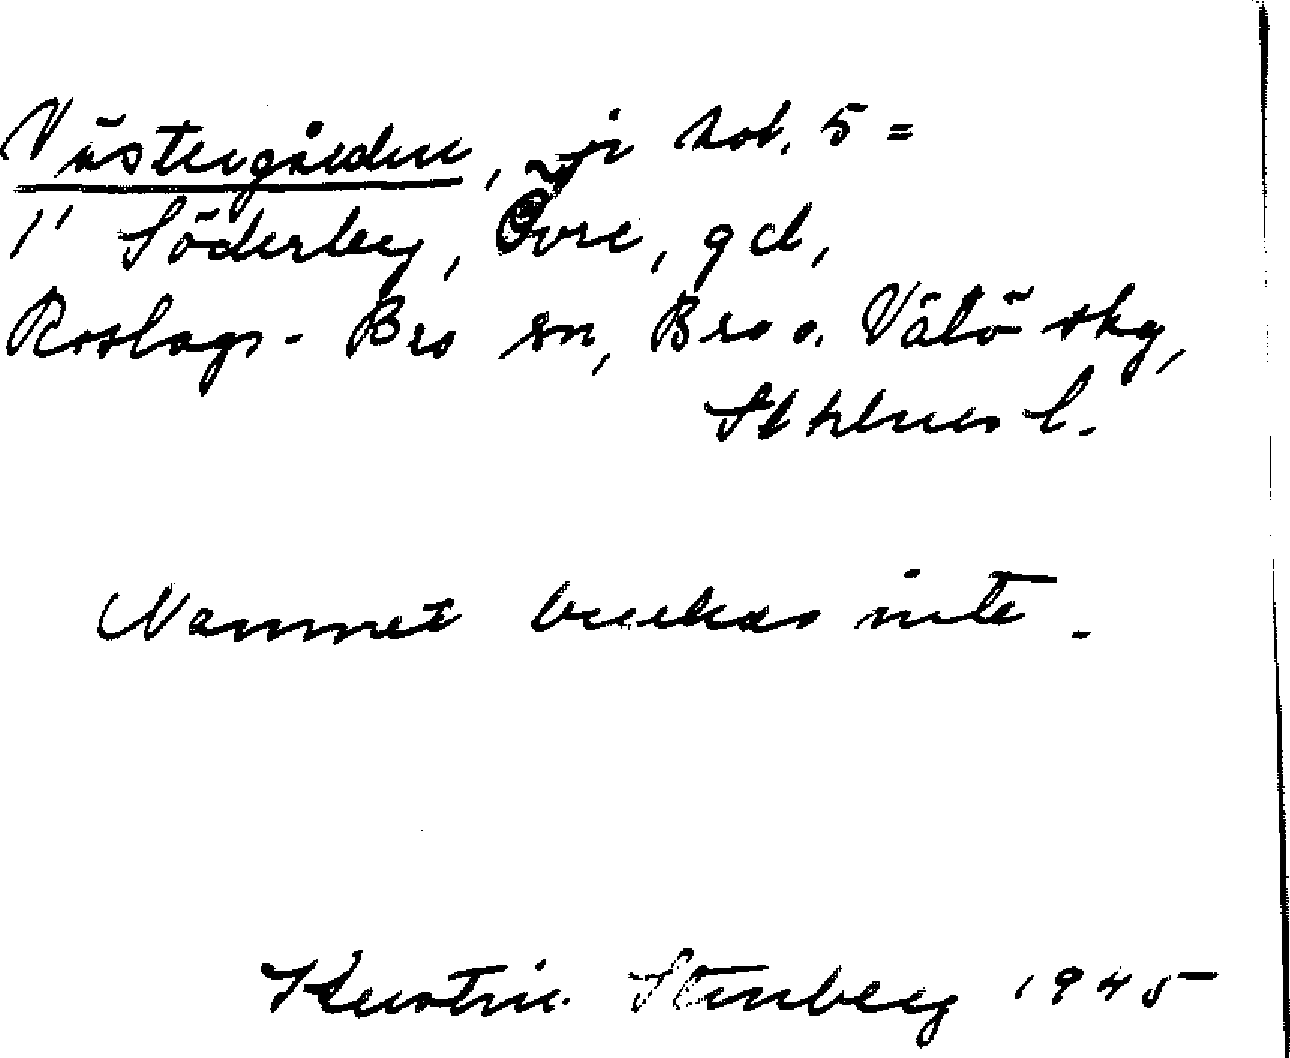 Västergården, ji kot. 5 =
1' Söderby, Övre, gd,
Roslags-Bro sn, Bro o. Vätö skg,
Sthlms l.
Namnet brukas inte.
Kerstin Stenberg 1945